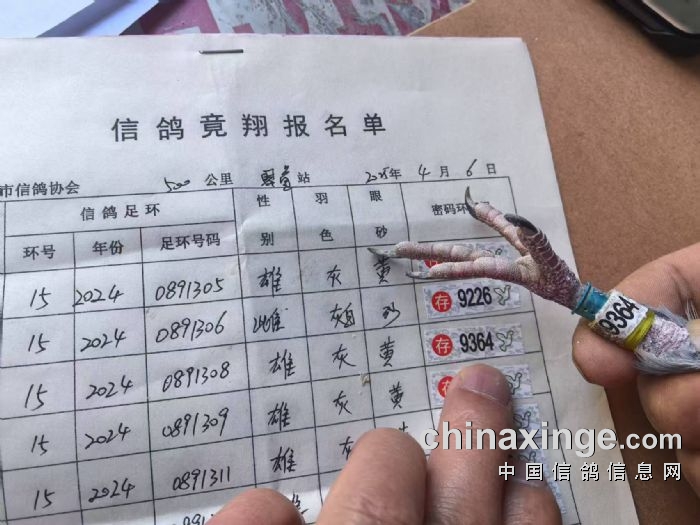 信鸽竟翔报名单
市信鸽协会 500 公里 站 2025年 4 月 6 日
信鸽足环 性别 羽色 眼砂 密码环
环号 年份 足环号码
15 2024 0891305 雄 灰 黄
15 2024 0891306 雌 灰 砂 存 9226
15 2024 0891308 雄 灰 黄 存 9364
15 2024 0891309 雄 灰 黄 存
15 2024 0891311 雄 灰
9364
chinaxinge.com
中国信鸽信息网